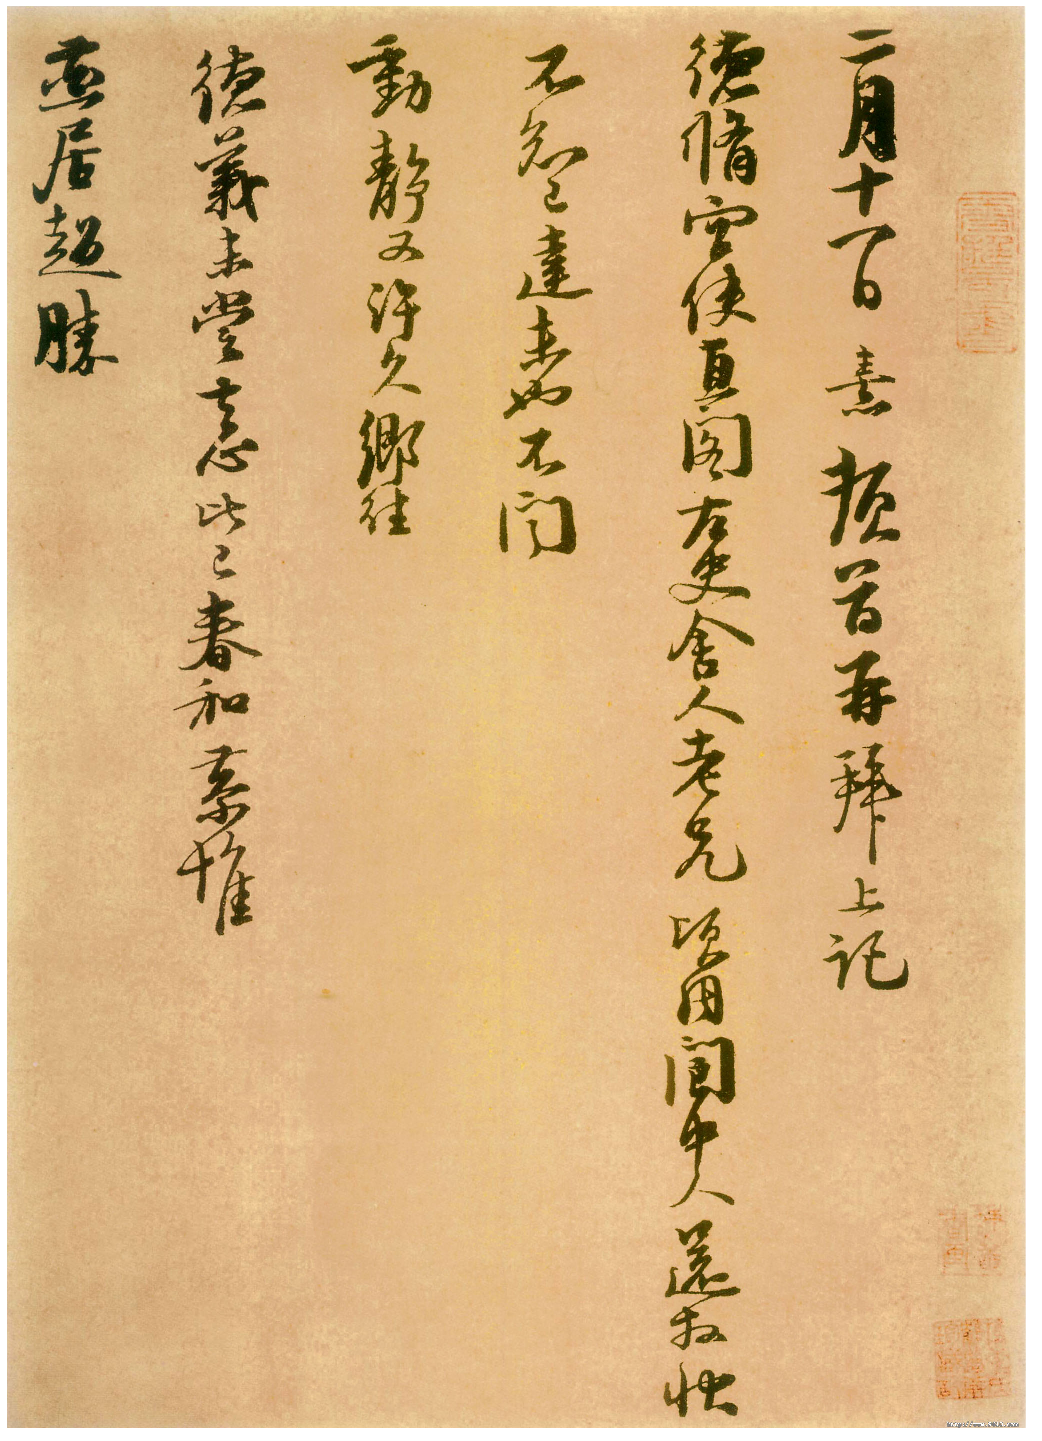 二月十一日素頓首再拜上記
德脩雲使直閣右史舍人老兄頃因閬中人還拜狀
不知已達未也不聞
動靜又許久鄉往
德義未嘗去心比已春和恭惟
燕居超勝